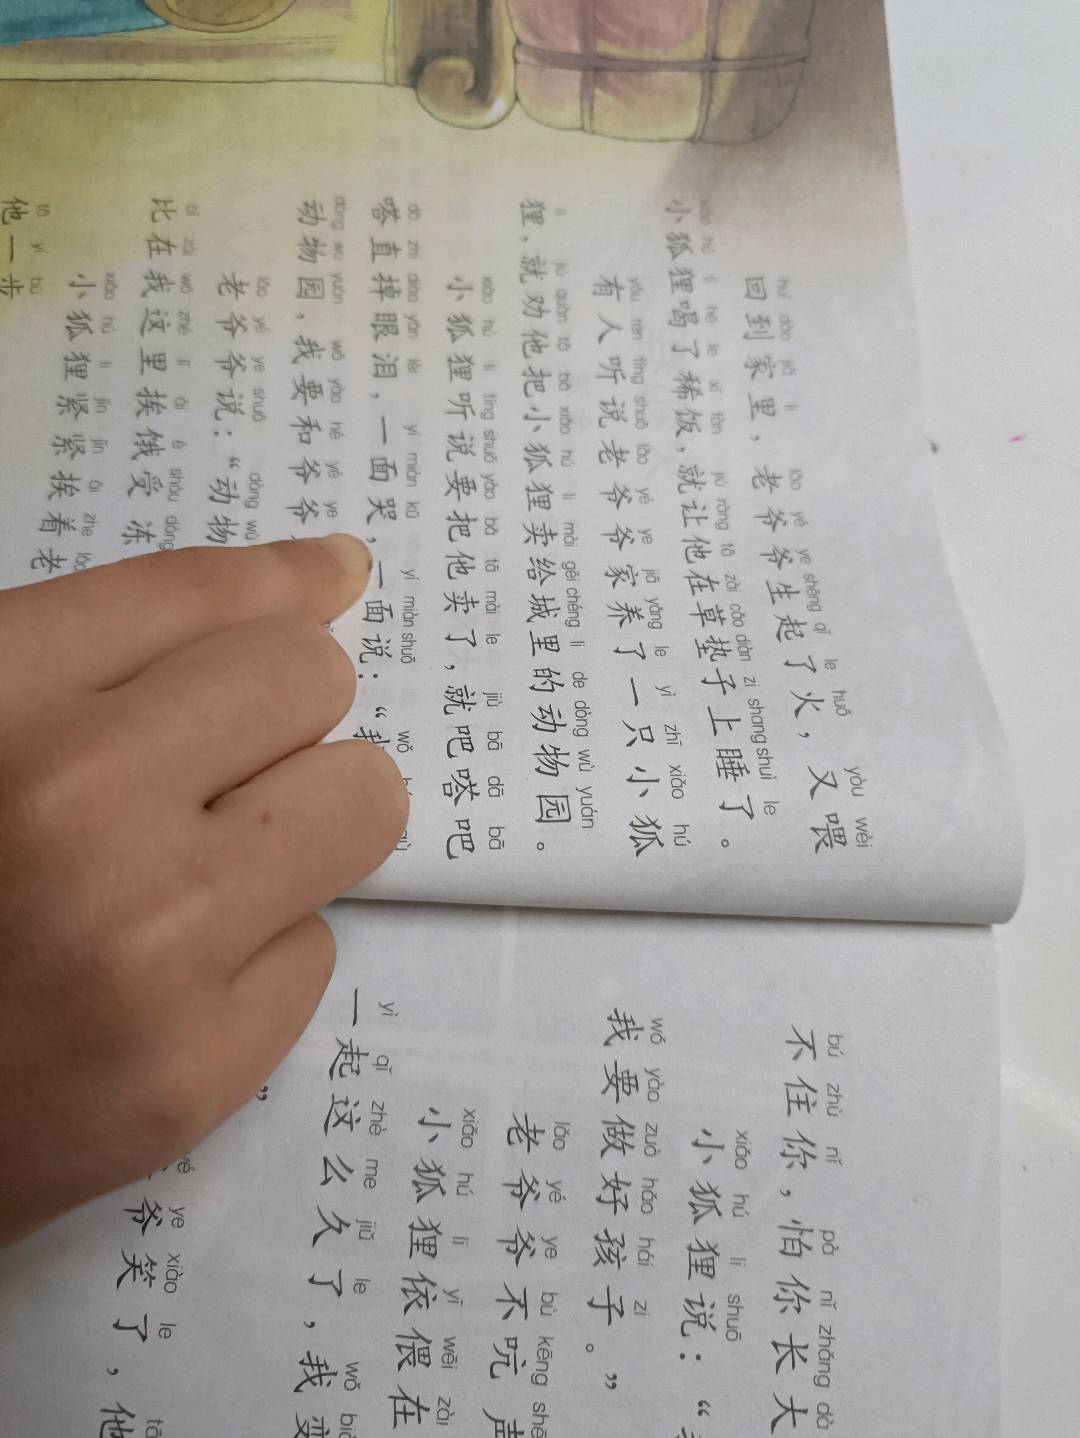 huí dào jiā lǐ lǎo yé ye shēng qǐ le huǒ yòu wèi
回到家里，老爷爷生起了火，又喂
xiǎo hú li hē le xī fàn jiù ràng tā zài cǎo diàn zi shang shuì le
小狐狸喝了稀饭，就让他在草垫子上睡了。
yǒu rén tīng shuō lǎo yé ye jiā yǎng le yì zhī xiǎo hú
有人听说老爷爷家养了一只小狐
li jiù quàn tā bǎ xiǎo hú li mài gěi chéng li de dòng wù yuán
狸，就劝他把小狐狸卖给城里的动物园。
xiǎo hú li tīng shuō yào bǎ tā mài le jiù bā dā bā
小狐狸听说要把他卖了，就吧嗒吧
dā zhí diào yǎn lèi yí miàn kū yí miàn shuō wǒ
嗒直掉眼泪，一面哭，一面说：“我
dòng wù yuán wǒ yào hé yé ye
动物园，我要和爷爷
lǎo yé ye shuō dòng wù
老爷爷说：“动物
bǐ zài wǒ zhè lǐ ái è shòu dòng
比在我这里挨饿受冻
xiǎo hú li jǐn jǐn āi zhe lǎo
小狐狸紧紧挨着老
tā yí bù
他一步
bú zhù nǐ pà nǐ zhǎng dà
不住你，怕你长大
xiǎo hú li shuō
小狐狸说：“
wǒ yào zuò hǎo hái zi
我要做好孩子。”
lǎo yé ye bù kēng shē
老爷爷不吭声
xiǎo hú li yī wēi zài
小狐狸依偎在
yì qǐ zhè me jiǔ le wǒ bià
一起这么久了，我变
”
yé ye xiào le tā
爷笑了，他